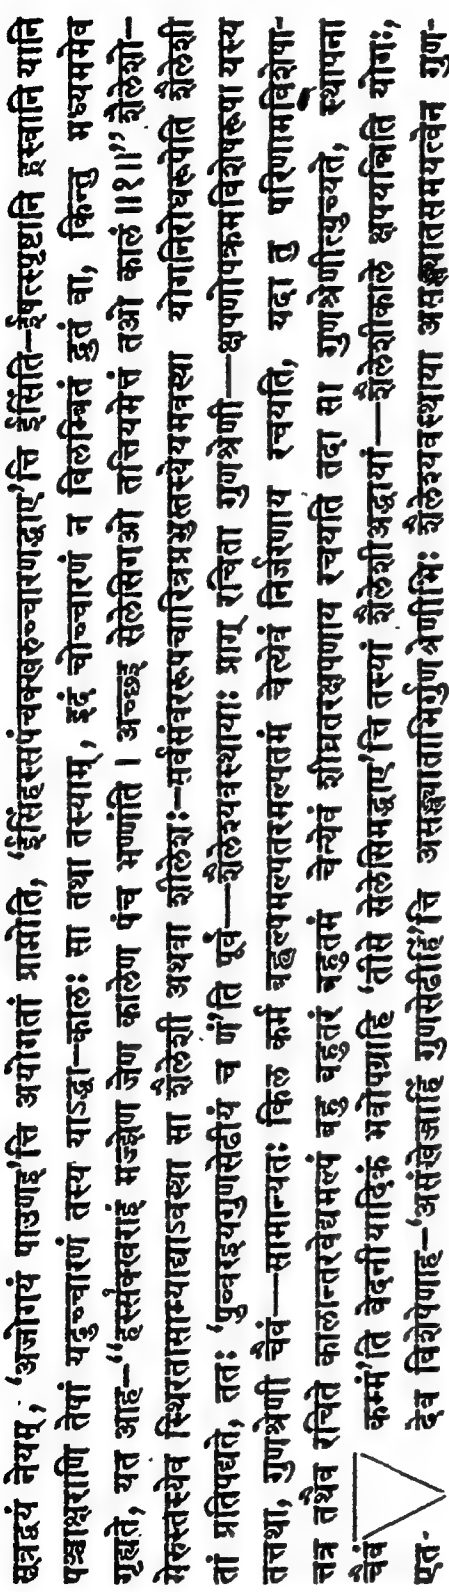 सूत्रद्वयं नेयम्, 'अजोगयं पाउणइ'त्ति अयोगतां प्राप्नोति, 'ईसिंहस्सपंचक्खरुच्चारणद्धाए'त्ति ईसिंति–ईषत्स्पृष्टानि ह्रस्वानि यानि
पञ्चाक्षराणि तेषां यदुच्चारणं तस्य याऽद्धा—कालः सा तथा तस्याम्, इदं चोच्चारणं न विलम्बितं द्रुतं वा, किन्तु मध्यममेव
गृह्यते, यत आह–"हस्संक्खराइं मज्झेण जेण कालेण पंच भण्णंति । अच्छइ सेलेसिगओ तत्तियमेत्तं तओ कालं ॥१॥" शैलेशो–
मेरुस्तस्येव स्थिरतासाम्याद्याऽवस्था सा शैलेशी अथवा शीलेशः–सर्वसंवररूपचारित्रप्रभुस्तस्येयमवस्था योगनिरोधरूपेति शैलेशी
तां प्रतिपद्यते, ततः 'पुव्वरइयगुणसेढीयं च णं'ति पूर्वं—शैलेश्यवस्थायाः प्राग् रचिता गुणश्रेणी—क्षपणोपक्रमविशेषरूपा यस्य
तत्तथा, गुणश्रेणी चैवं—सामान्यतः किल कर्म बह्वल्पमल्पतरमल्पतमं चेत्येवं निर्जरणाय रचयति, यदा तु परिणामविशेषा-
त्तत्र तथैव रचिते कालान्तरवेद्यमल्पं बहु बहुतरं बहुतमं चेत्येवं शीघ्रतरक्षपणाय रचयति तदा सा गुणश्रेणीत्युच्यते, स्थापना
चैवं कम्मं'ति वेदनीयादिकं भवोपग्राहि 'तीसे सेलेसिमद्धाए'त्ति तस्यां शैलेशीअद्धायां—शैलेशीकाले क्षपयन्निति योगः,
एत- देव विशेषेणाह–'असंखेज्जाहिं गुणसेढीहिं'ति असङ्ख्याताभिर्गुणश्रेणीभिः शैलेश्यवस्थाया असङ्ख्यातसमयत्वेन गुण-